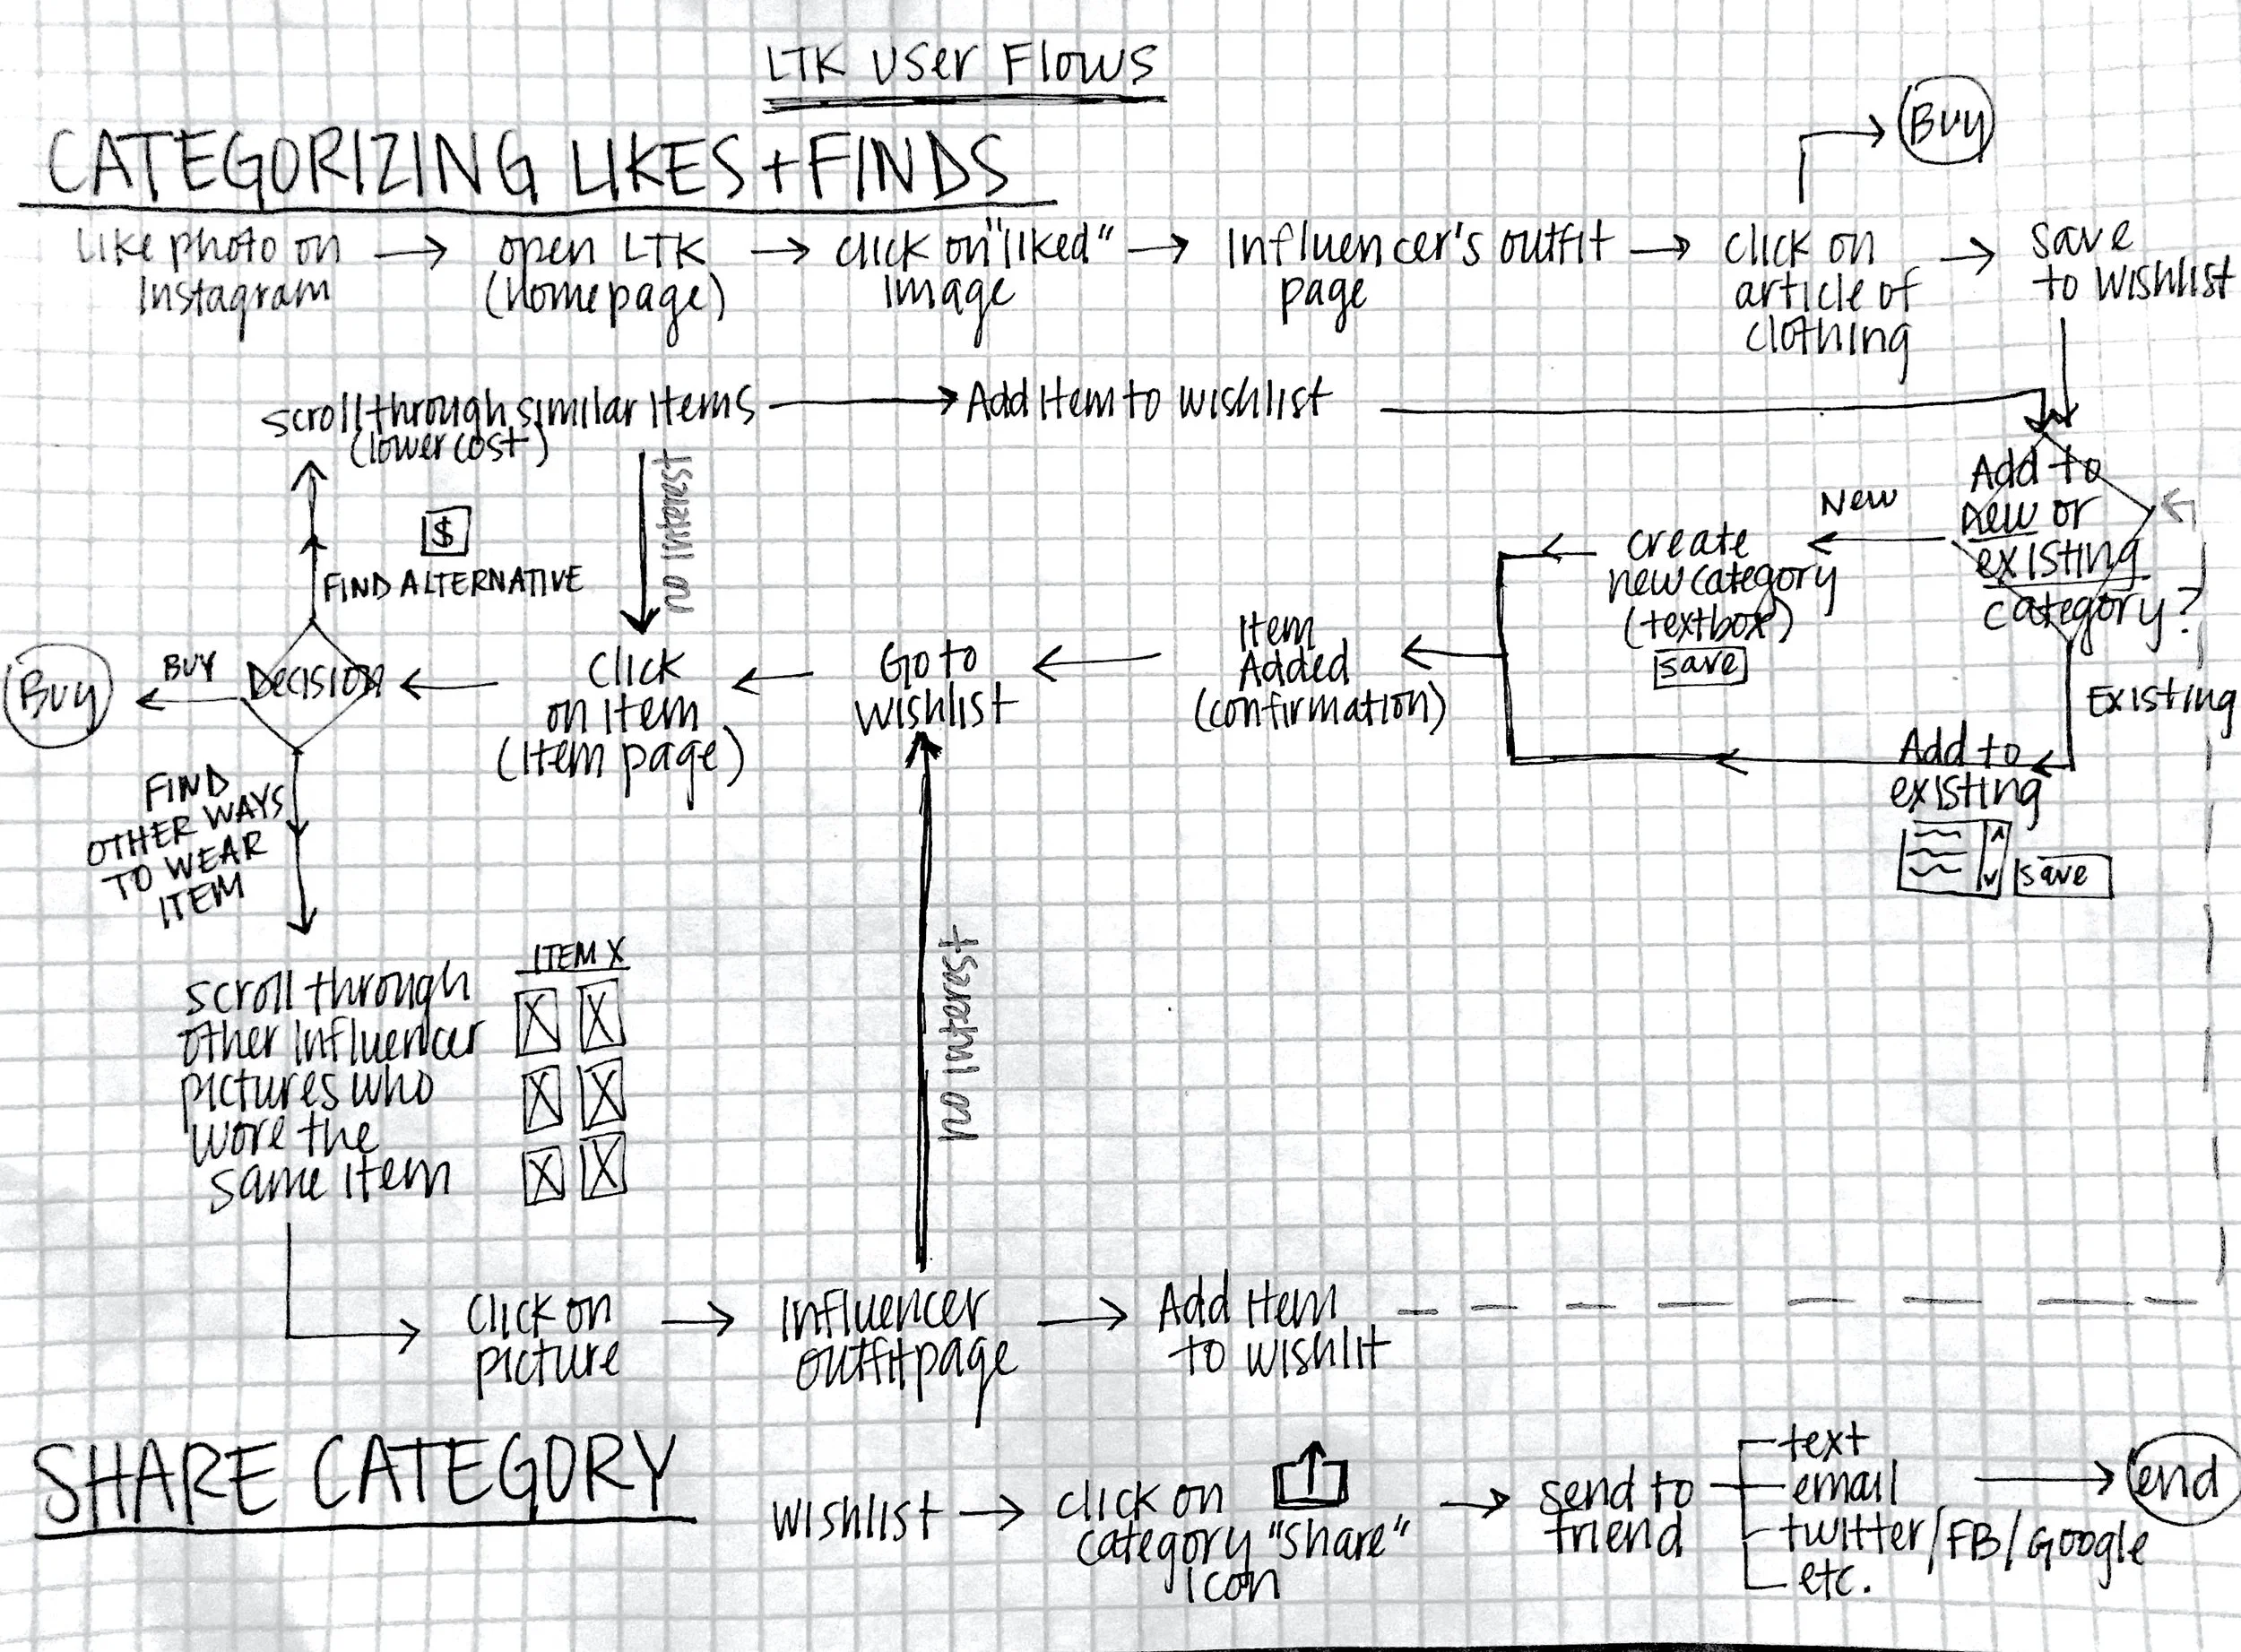 LTK User Flows
CATEGORIZING LIKES + FINDS
Buy
Like photo on
Instagram
open LTK
(homepage)
click on "liked"
image
Influencer's outfit
page
click on
article of
clothing
save
to wishlist
scroll through similar items
(lower cost)
Add item to wishlist
no interest
$
FIND ALTERNATIVE
Add to
new or
existing
category?
New
create
new category
(textbox)
save
Existing
Add to
existing
save
Item
Added
(confirmation)
Go to
wishlist
click
on item
(item page)
Decision
BUY
Buy
FIND
OTHER WAYS
TO WEAR
ITEM
scroll through
other influencer
pictures who
wore the
same item
ITEM X
no interest
click on
picture
Influencer
outfit page
Add item
to wishlit
SHARE CATEGORY
wishlist
click on
category "share"
icon
send to
friend
text
email
twitter/FB/Google
etc.
end